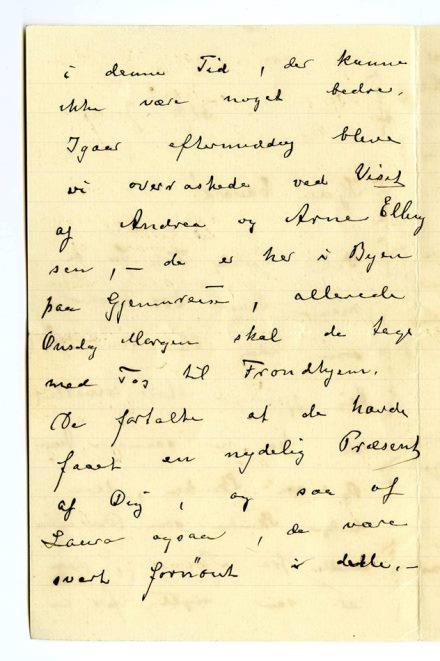 i denne Tid, der kunne
ikke være noget bedre.
Igaar eftermiddag bleve
vi overraskede ved Visit
af Andrea og Arne Elling
sen, – de er her i Byen
paa Gjennureise, allerede
Onsdag Morgen skal de tage
med Tog til Trondhjem.
De fortalte at de havde
faaet en nydelig Præsent
af Dig, og saa af
Laura ogsaa, de være
svært fornöiet i dette. –